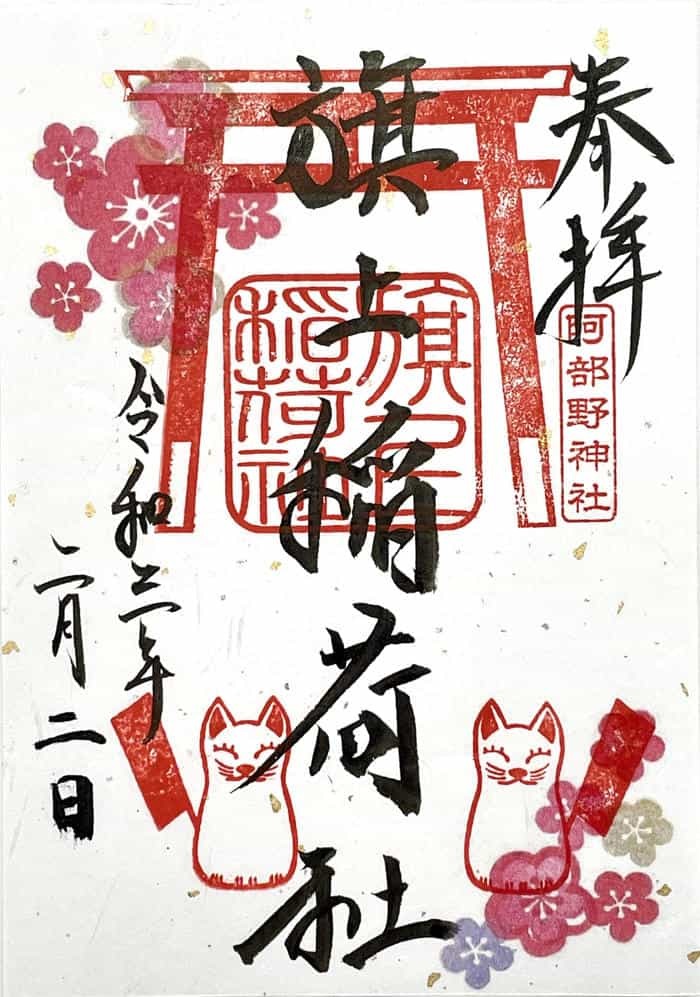 奉拝
阿部野神社
旗上稲荷社
旗上
稲荷社
令和三年
二月二日